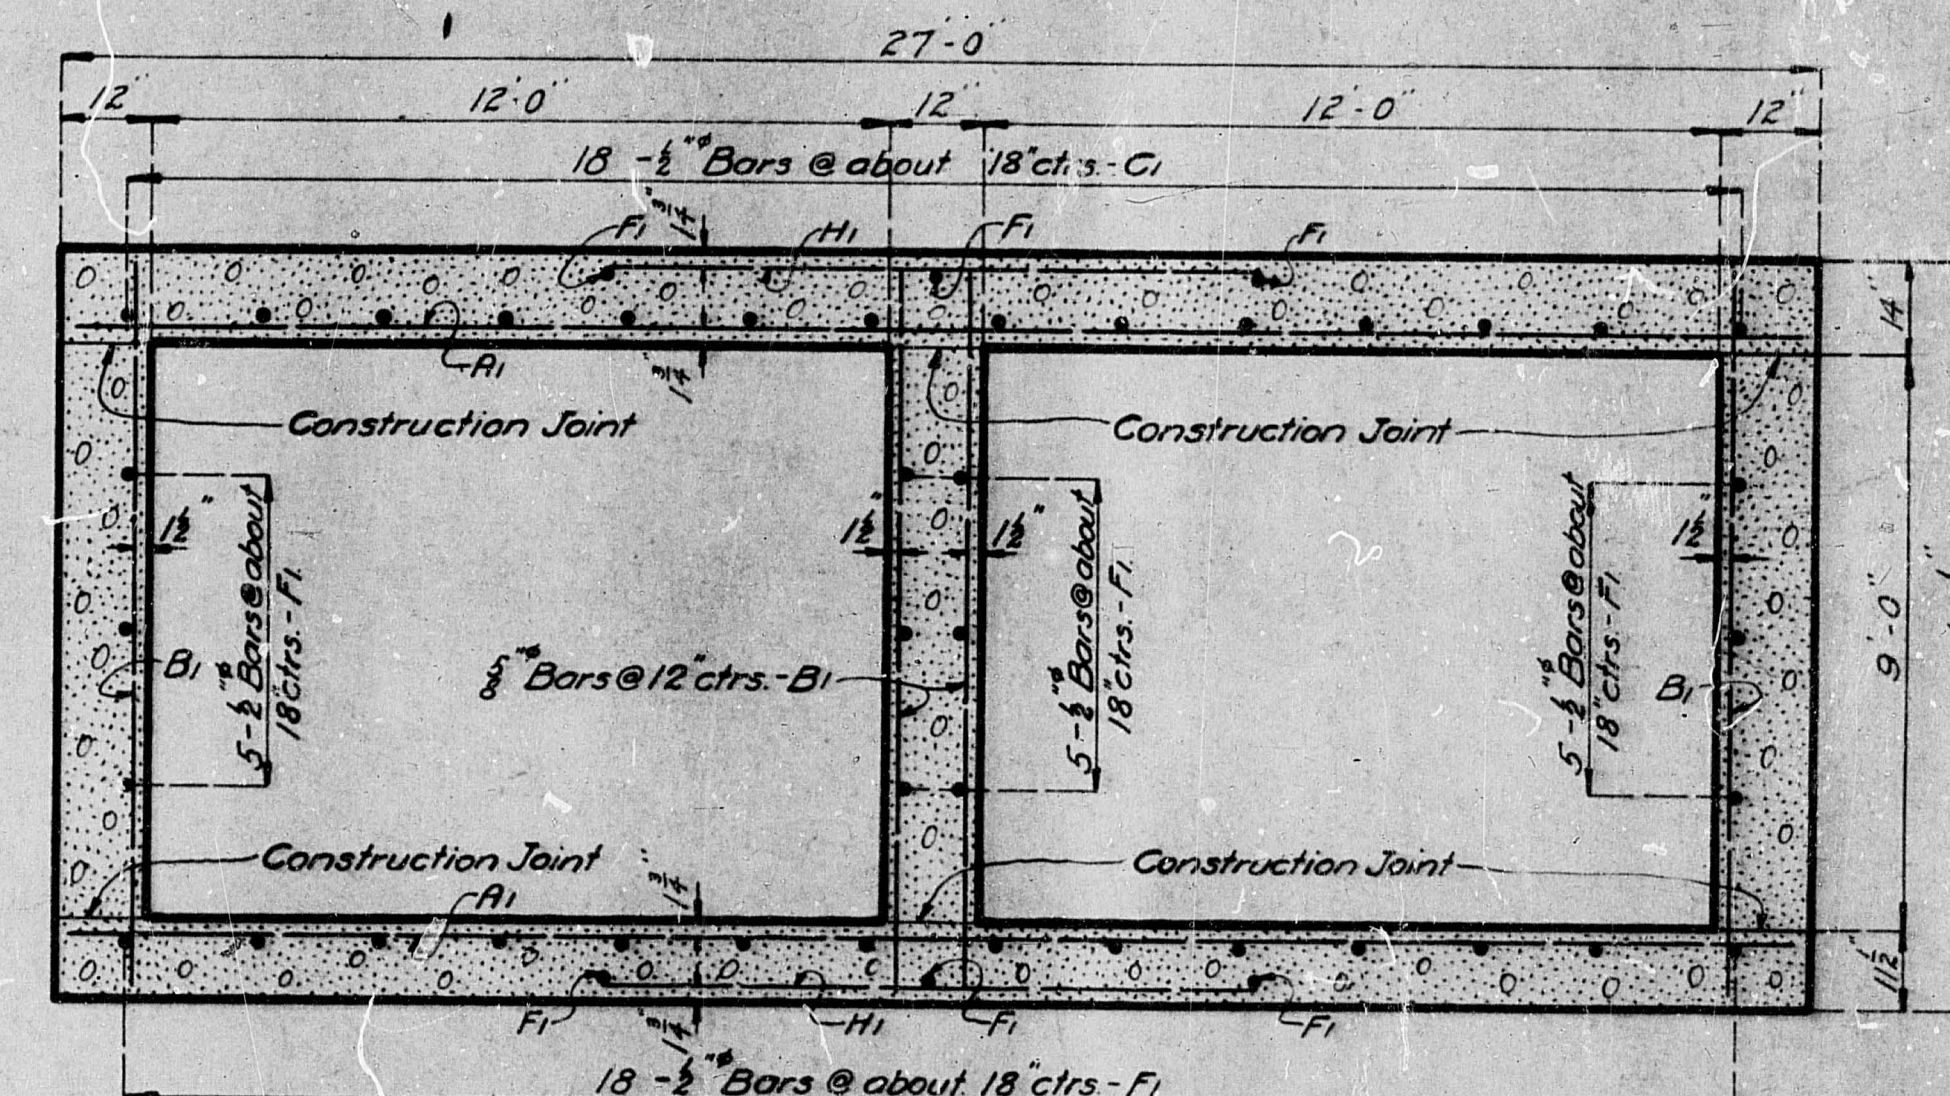 27'-0"
12" 12'-0" 12" 12'-0" 12"
18 -½"ᶲ Bars @ about 18" ctrs. - C1
F1 1¾" H1 F1 F1
14"
A1 1¾"
Construction Joint Construction Joint
1½" 1½" 1½" 1½"
5-½"ᶲ Bars @ about
18" ctrs. - F1
5-½"ᶲ Bars @ about
18" ctrs. - F1
5-½"ᶲ Bars @ about
18" ctrs. - F1
9'-0"
B1 ⅝"ᶲ Bars @ 12" ctrs. - B1 B1
Construction Joint Construction Joint
A1 1¾"
11½"
F1 1¾" H1 F1 F1
18 -½"ᶲ Bars @ about 18" ctrs - F1